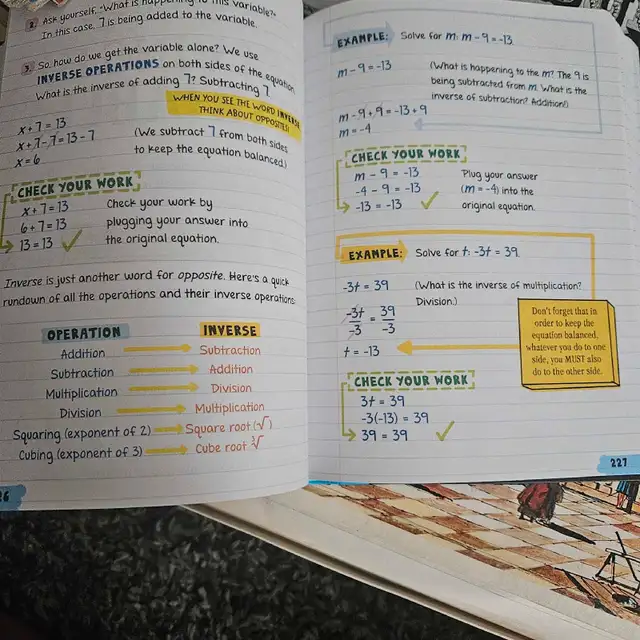 2. Ask yourself, "What is happening to this variable?"
In this case, 7 is being added to the variable.
3. So, how do we get the variable alone? We use
INVERSE OPERATIONS on both sides of the equation.
What is the inverse of adding 7? Subtracting 7.
WHEN YOU SEE THE WORD INVERSE
THINK ABOUT OPPOSITES!
x + 7 = 13
x + 7 - 7 = 13 - 7
x = 6
(We subtract 7 from both sides
to keep the equation balanced.)
CHECK YOUR WORK
x + 7 = 13
6 + 7 = 13
13 = 13 ✓
Check your work by
plugging your answer into
the original equation.
Inverse is just another word for opposite. Here's a quick
rundown of all the operations and their inverse operations:
OPERATION INVERSE
Addition Subtraction
Subtraction Addition
Multiplication Division
Division Multiplication
Squaring (exponent of 2) Square root (√)
Cubing (exponent of 3) Cube root ∛
26
EXAMPLE: Solve for m: m - 9 = -13.
m - 9 = -13
(What is happening to the m? The 9 is
being subtracted from m. What is the
inverse of subtraction? Addition!)
m - 9 + 9 = -13 + 9
m = -4
CHECK YOUR WORK
m - 9 = -13
-4 - 9 = -13
-13 = -13 ✓
Plug your answer
(m = -4) into the
original equation.
EXAMPLE: Solve for t: -3t = 39.
-3t = 39
(What is the inverse of multiplication?
Division.)
-3t/-3 = 39/-3
t = -13
Don't forget that in
order to keep the
equation balanced,
whatever you do to one
side, you MUST also
do to the other side.
CHECK YOUR WORK
3t = 39
-3(-13) = 39
39 = 39 ✓
227